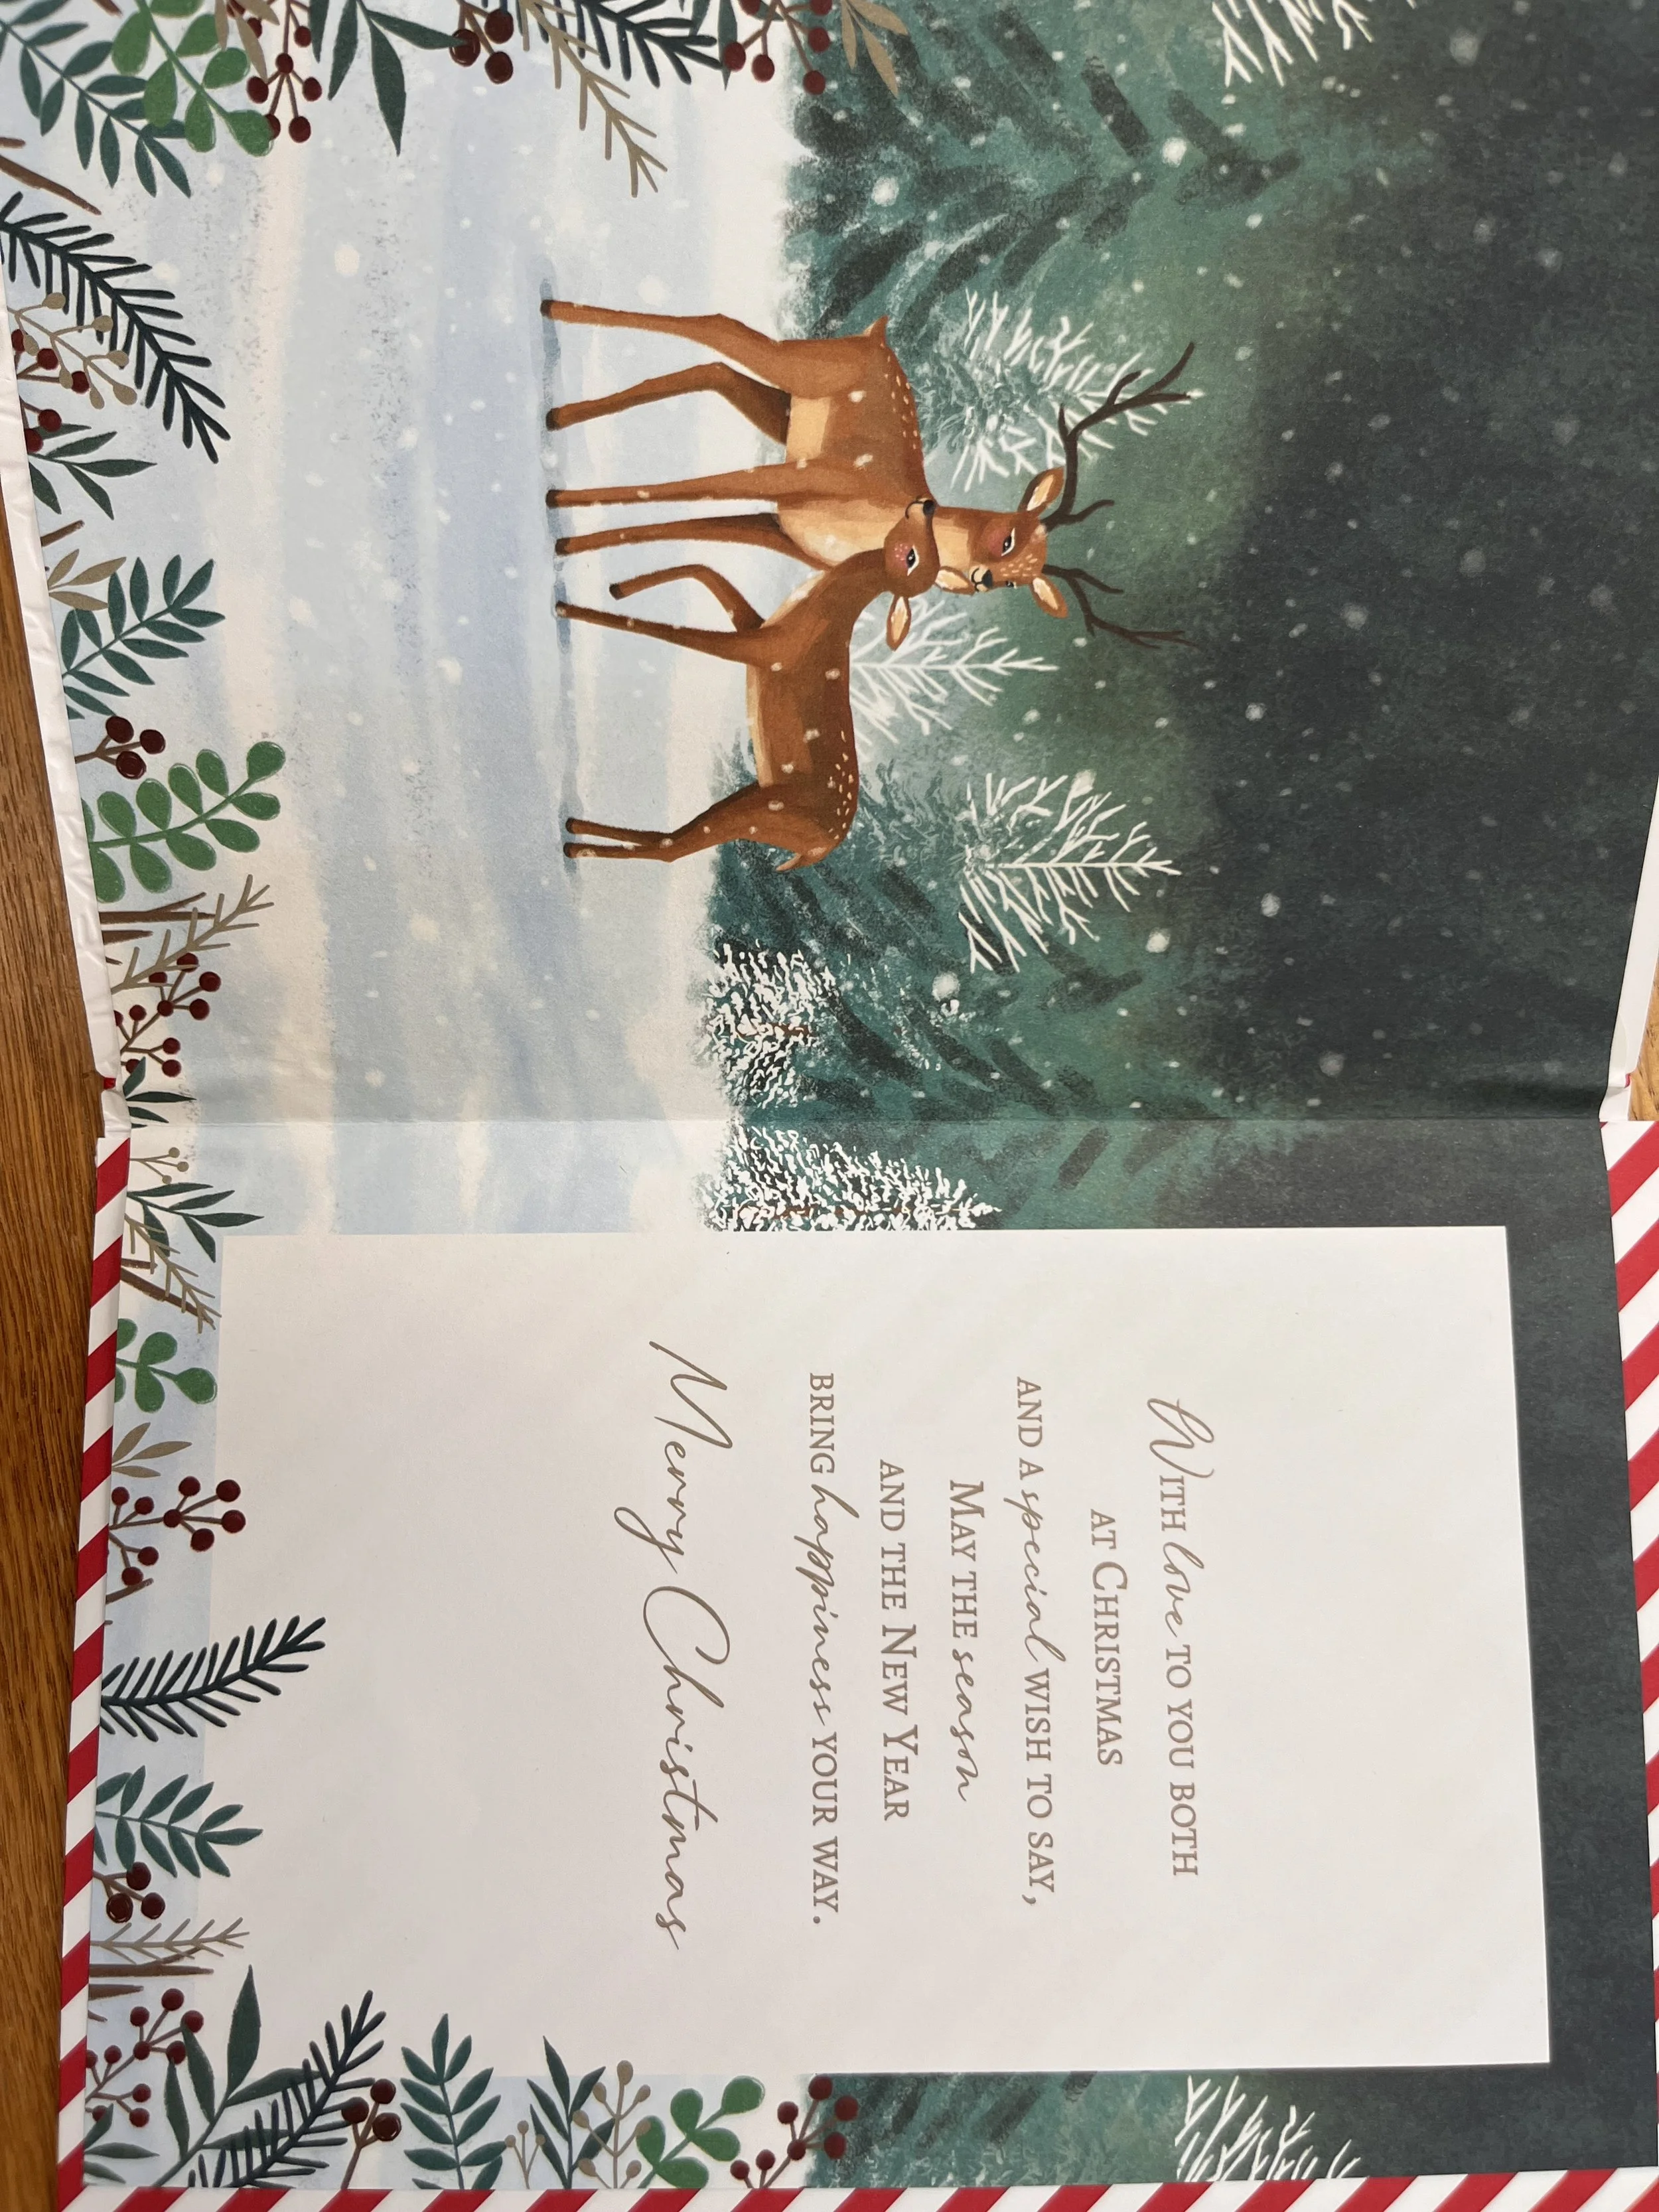 With love to you both
at Christmas
and a special wish to say,
May the season
and the New Year
bring happiness your way.
Merry Christmas